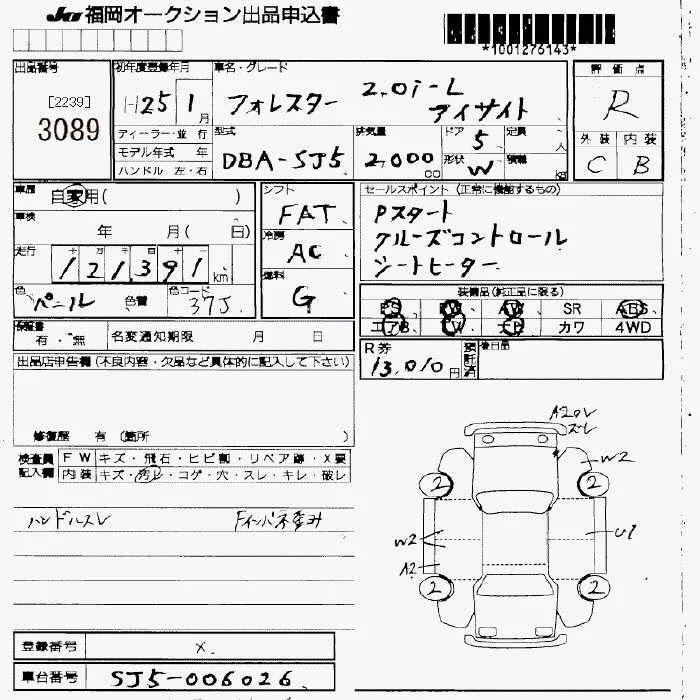 JU 福岡オークション出品申込書
*1001276143*
出品番号
[2239]
3089
初年度登録年月
H25 1月
車名・グレード
フォレスター 2.0i-L アイサイト
評価点
R
外装 内装
C B
ディーラー・並行
モデル年式 年
ハンドル 左・右
型式
DBA-SJ5
排気量
2,000 cc
ドア 5
形状 W
定員 人
積載 kg
車歴 自家用( )
車検 年 月( 日)
走行 十 万 千 百 十 一
121,391 km
色 パール 色替 色コード 37J
シフト
FAT
冷房
AC
燃料
G
セールスポイント (正常に機能するもの)
Pスタート
クルーズコントロール
シートヒーター
装備品(純正品に限る)
PS PW AW SR ABS
エアB TV ナビ カワ 4WD
保証書 有・無 名変通知期限 月 日
R券 13,010円 預託済 後日品
出品店申告欄(不良内容・欠品など具体的に記入して下さい)
修復歴 有 (箇所 )
検査員 FW キズ・飛石・ヒビ割・リペア跡・X要
記入欄 内装 キズ・汚レ・コゲ・穴・スレ・キレ・破レ
ハンドルスレ Fインパネ歪み
A2 ズレ
W2
2 2
U1
W2
A2
2 2
登録番号 X.
車台番号 SJ5-006026